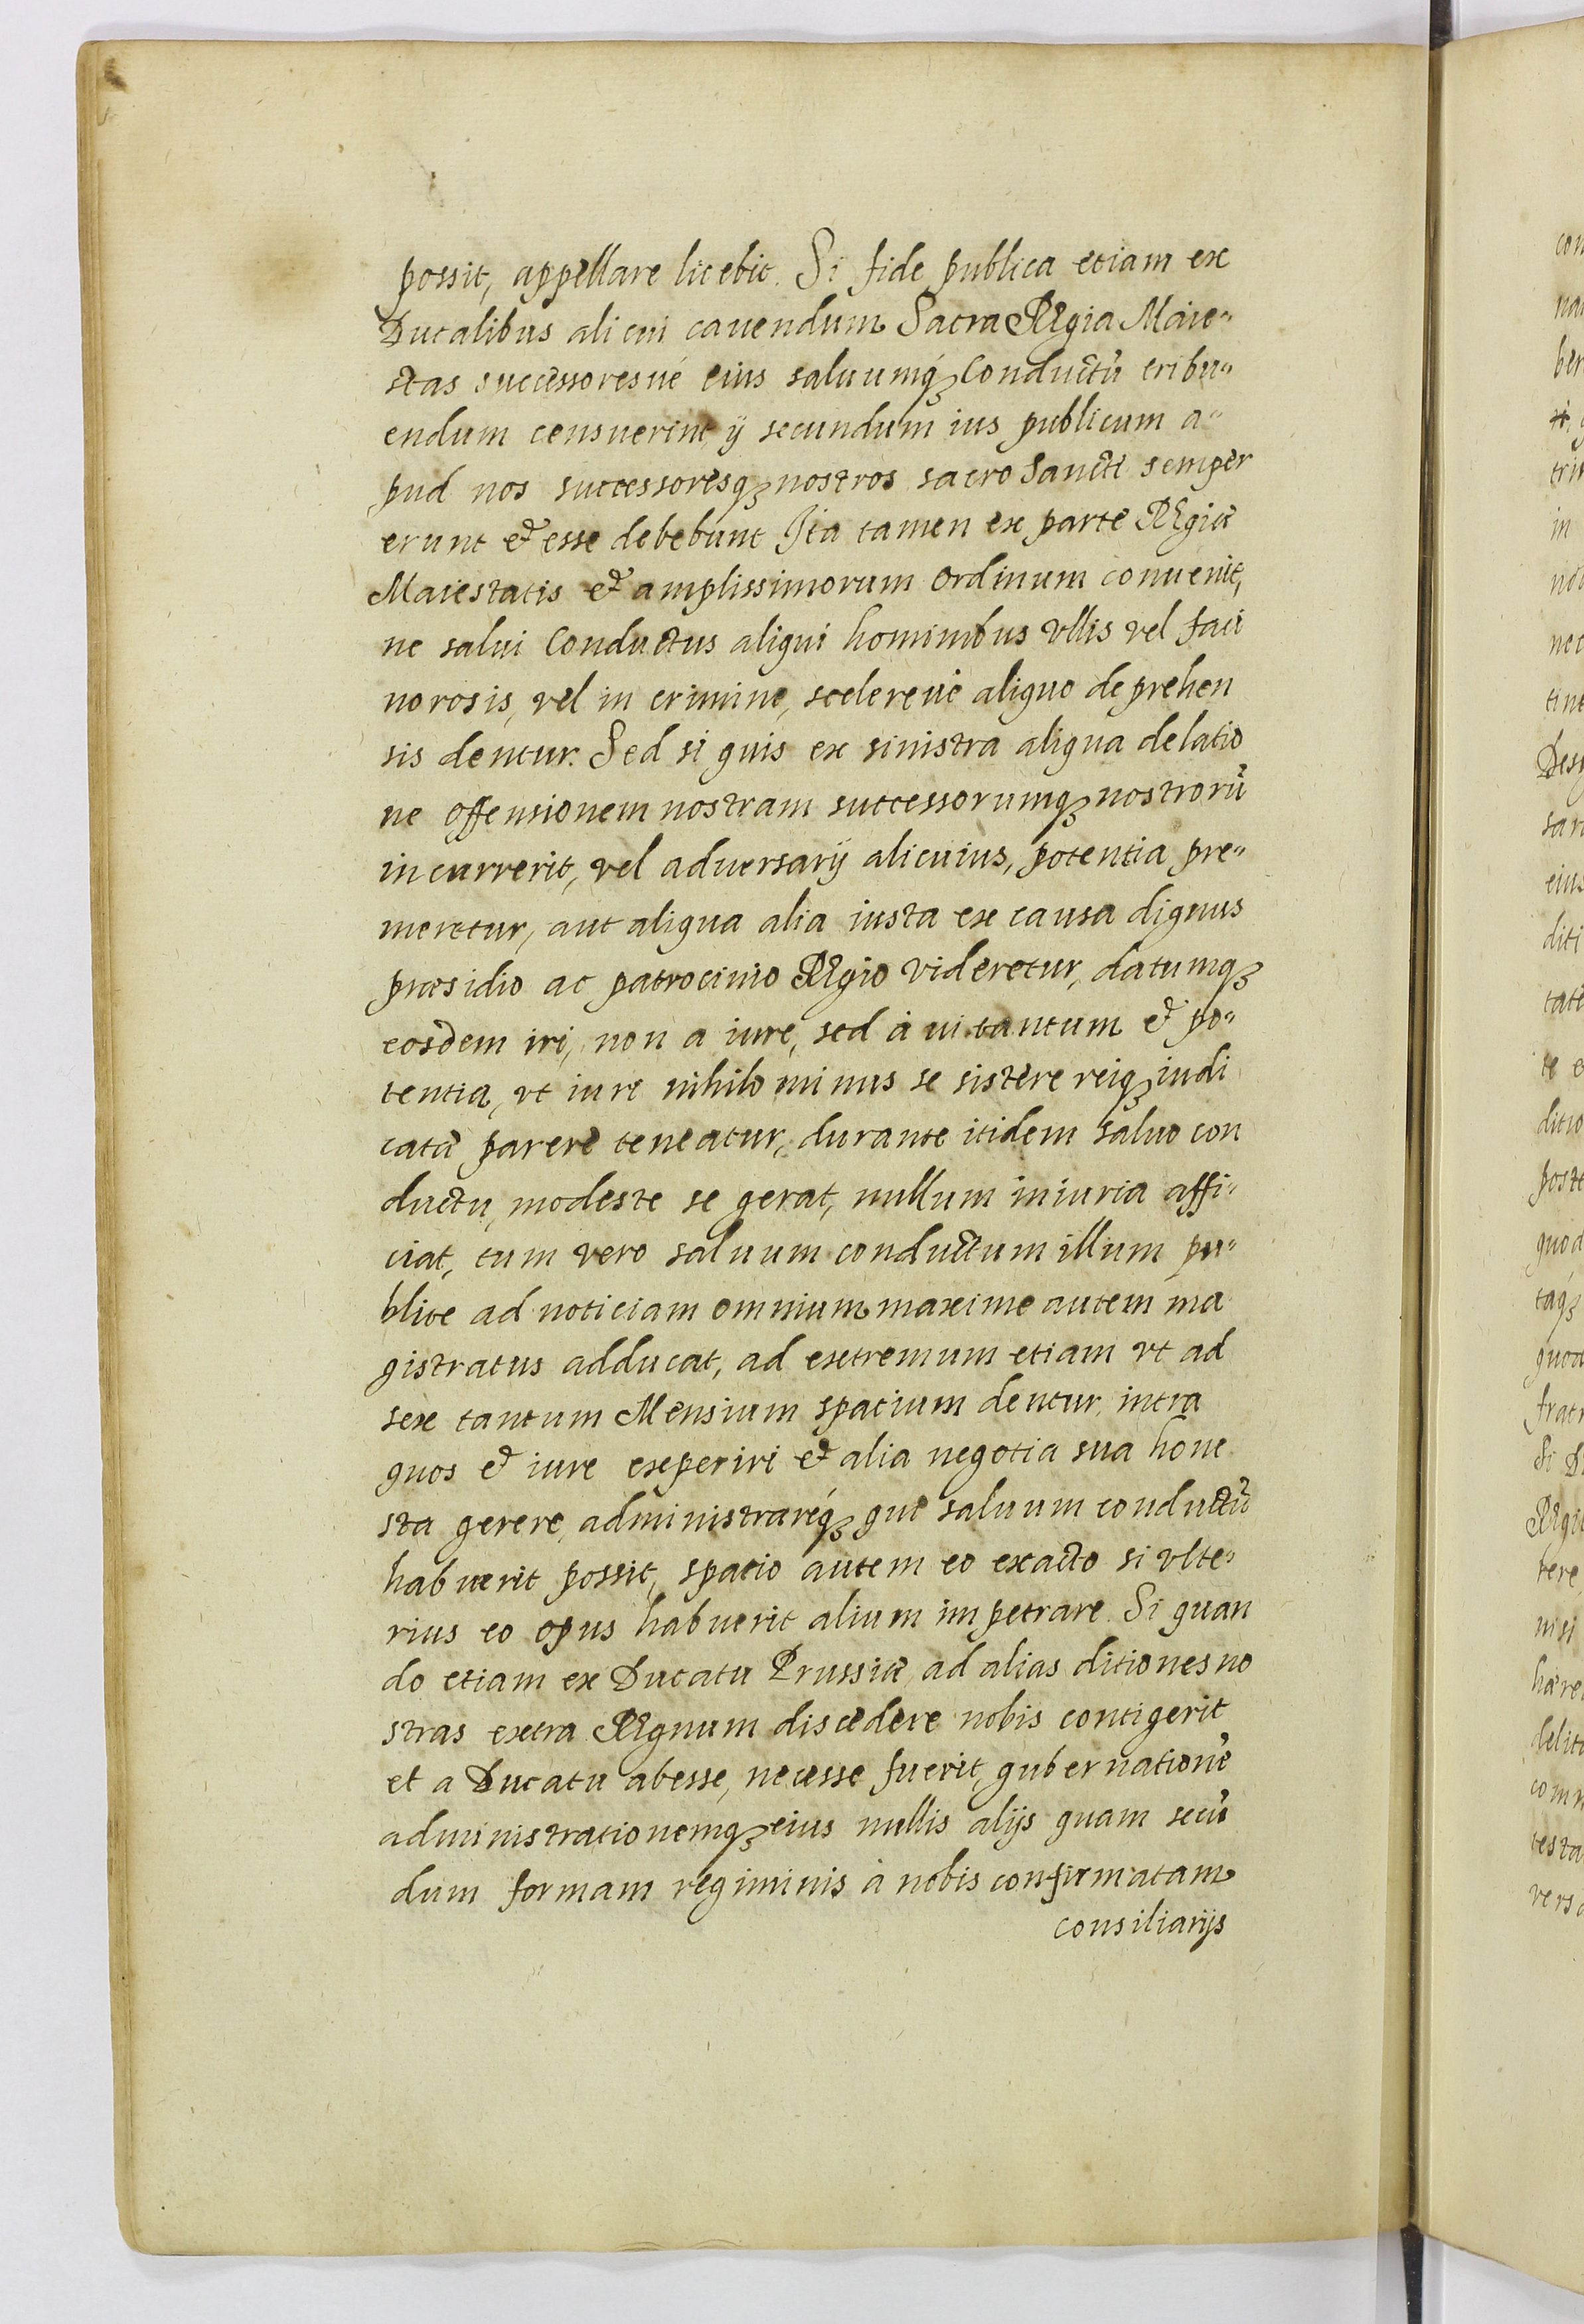 possit, appellare licebit. Si fide publica etiam ex
Ducalibus alicui cauendum Sacra Regia Maie„
stas successoresué eius saluumq́ꝫ Conductũ tribu„
endum censuerint, ij secundum ius publicum a„
pud nos successoresqꝫ nostros sacro Sancti semper
erunt & esse debebunt Ita tamen ex parte Regiæ
Maiestatis & amplissimorum Ordinum conuenit,
ne salui Conductus aliqui hominibus vllis vel faci
norosis, vel in crimine, scelereué aliquo deprehen
sis dentur. Sed si quis ex sinistra aliqua delatio
ne offensionem nostram successorumqꝫ nostrorũ
incurrerit, vel aduersarij alicuius, potentia pre„
meretur, aut aliqua alia iusta ex causa dignus
præsidio ac patrocinio Regio videretur, datumqꝫ
eosdem iri, non a iure, sed à ui tantum & po„
tentia, vt iure nihilominus se sistere reiqꝫ iudi
catæ parere teneatur, durante itidem saluo con
ductu, modeste se gerat, nullum iniuria affi„
ciat, tum vero saluum conductum illum pu„
blice ad noticiam omnium maxime autem ma
gistratus adducat, ad extremum etiam vt ad
sex tantum Mensium spatium dentur, intra
quos & iure experiri & alia negotia sua hone
sta gerere, administraréqꝫ qui saluum conductũ
habuerit possit, spatio autem eo exacto si vlte„
rius eo opus habuerit alium impetrare. Si quan
do etiam ex Ducatu Prussiæ ad alias ditiones no
stras extra Regnum discedere nobis contigerit
et a Ducatu abesse, necesse fuerit, gubernationẽ
administrationemqꝫ eius nullis alijs quam secũ
dum formam regiminis à nobis confirmatam
consiliarijs